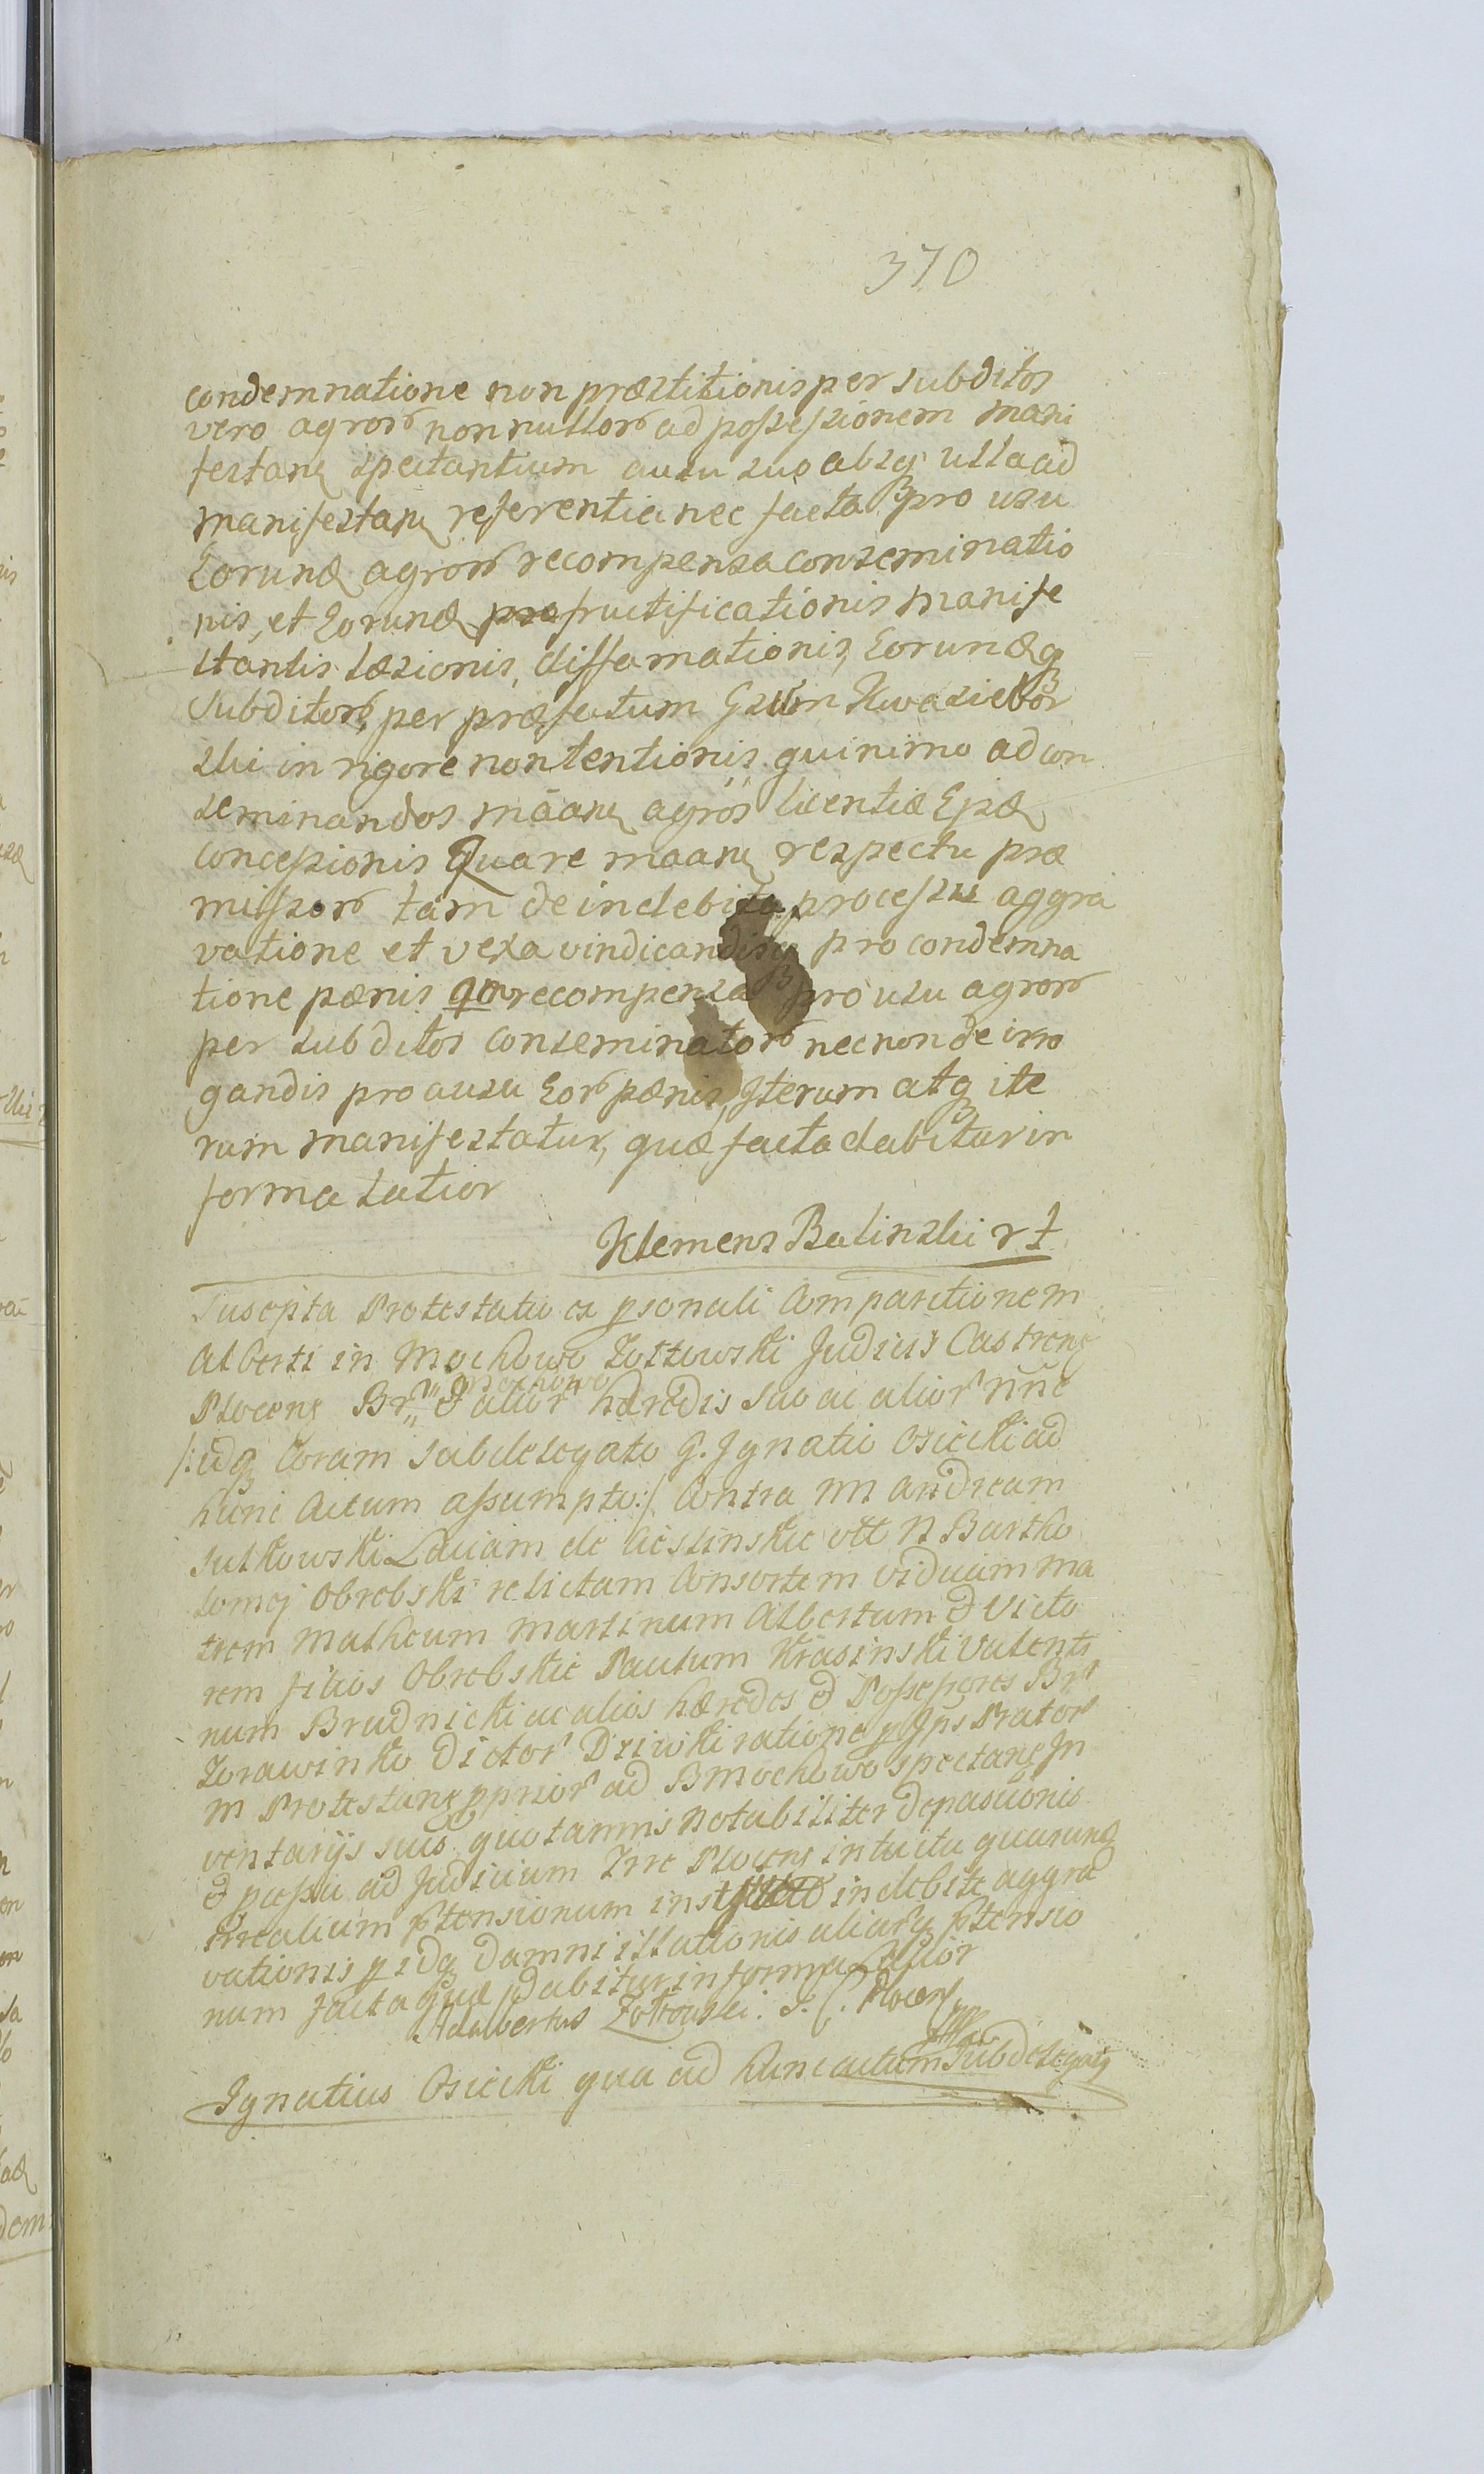 370
condemnatione non præstitionis per subditos
vero agror̃ nonnullor̃ ad possessionem mani
festanꝭ spectantium ausu suo absq ulla ad
manifestanꝭ referentia nec facta pro usu
Eorundꝭ agror̃ recompensa conseminatio
nis, et Eorundꝭ fructificationis manife
stantis læsionis, diffamationis, Eorundꝭq
Subditor̃, per præfatum
ski in rigore non tentionis quinimo ad con
seminandos māanꝭ agros licentiæ Epꝭ
concessionis Quare maanꝭ respectu præ
missor̃ tam de indebita processu aggra
vatione et vexa vindicandisq pro condemna
tione pænis qo recompensa pro usu agror̃
per subditos conseminator̃ necnon de irro
gandis pro ausu Eor̃ pænis, Iterum atq ite
rum manifestatur, quæ facta dabitur in
forma latior
Klemens Balinski
Suscepta Protestatio ex psonali Comparitionem
Alberti in Mochowo Zołtowski Judicis Castrenꝭ
Mochowo
Plocenꝭ Br. & alior̃ hæredis suo ac alior̃ nñe
/:idq Coram Subdelegato G. Ignatio Osiecki ad
hunc Actum assumpto:/ Contra NN Andream
Sutkowski de Cieslinskie olī N Bartho
lomej Obrebski relictam Consortem viduam ma
trem Matheum Martinum Albertum & Victo
rem filios Obrebskie Paulum Krasinski Valenti
num Brudnicki ac alios hæredes & Possessores Br̃
Zorawinko dictor̃ Dziwki ratione p Ips Prator̃
m Protestanꝭ pprior̃ ad B Mochowo spectanꝭ In
ventarijs suis quotannis notabiliter depascionis
& passu ad Judicium Trre Plocenꝭ intuitu quarundꝭ
Irrealium ptensionum indebite aggra
vationis p idq damni illationis aliarq ptensio
num facta quæ dabitur in forma Latior
Adalbertus Zołtowski. J. C. Plocen
Ignatius Osiecki qua ad hunc actum Subdelegatꝭ